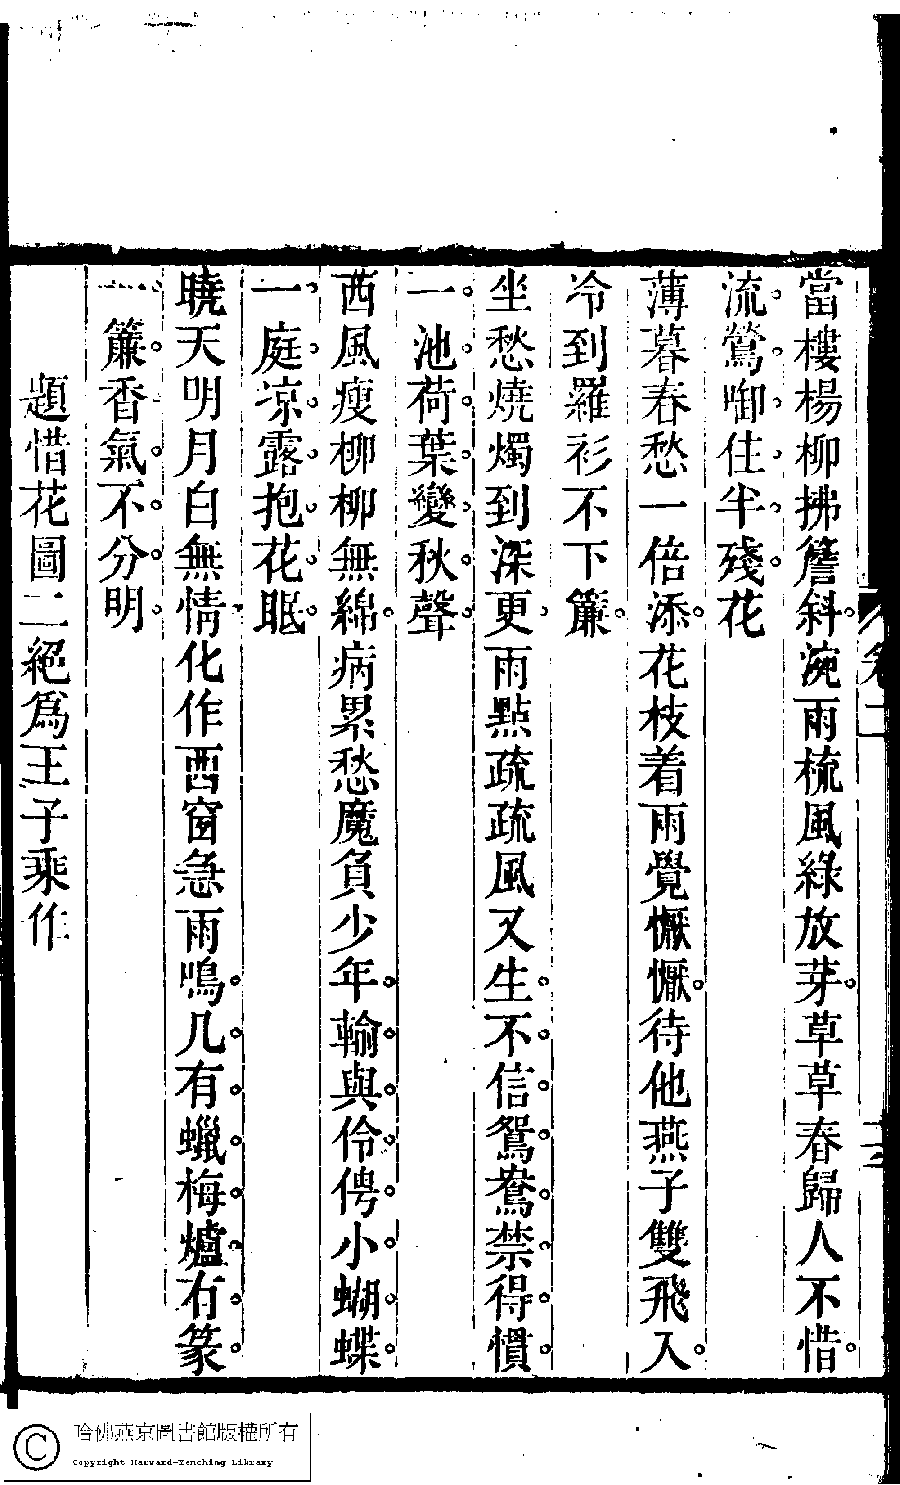 當樓楊柳拂簷斜涴雨梳風綠放芽草草春歸人不惜
流鶯啣住半殘花
薄暮春愁一倍添花枝着雨覺懨懨待他燕子雙飛入
冷到羅衫不下簾
坐愁燒燭到深更雨點疏疏風又生不信鴛鴦禁得慣
一池荷葉變秋聲
西風瘦柳柳無綿病累愁魔負少年輸與伶俜小蝴蝶
一庭凉露抱花眠
曉天明月白無情化作西窗急雨鳴几有蠟梅爐有篆
一簾香氣不分明
題惜花圖二絕爲王子乘作
卷二
哈佛燕京圖書館版權所有
Copyright Harvard-Yenching Library